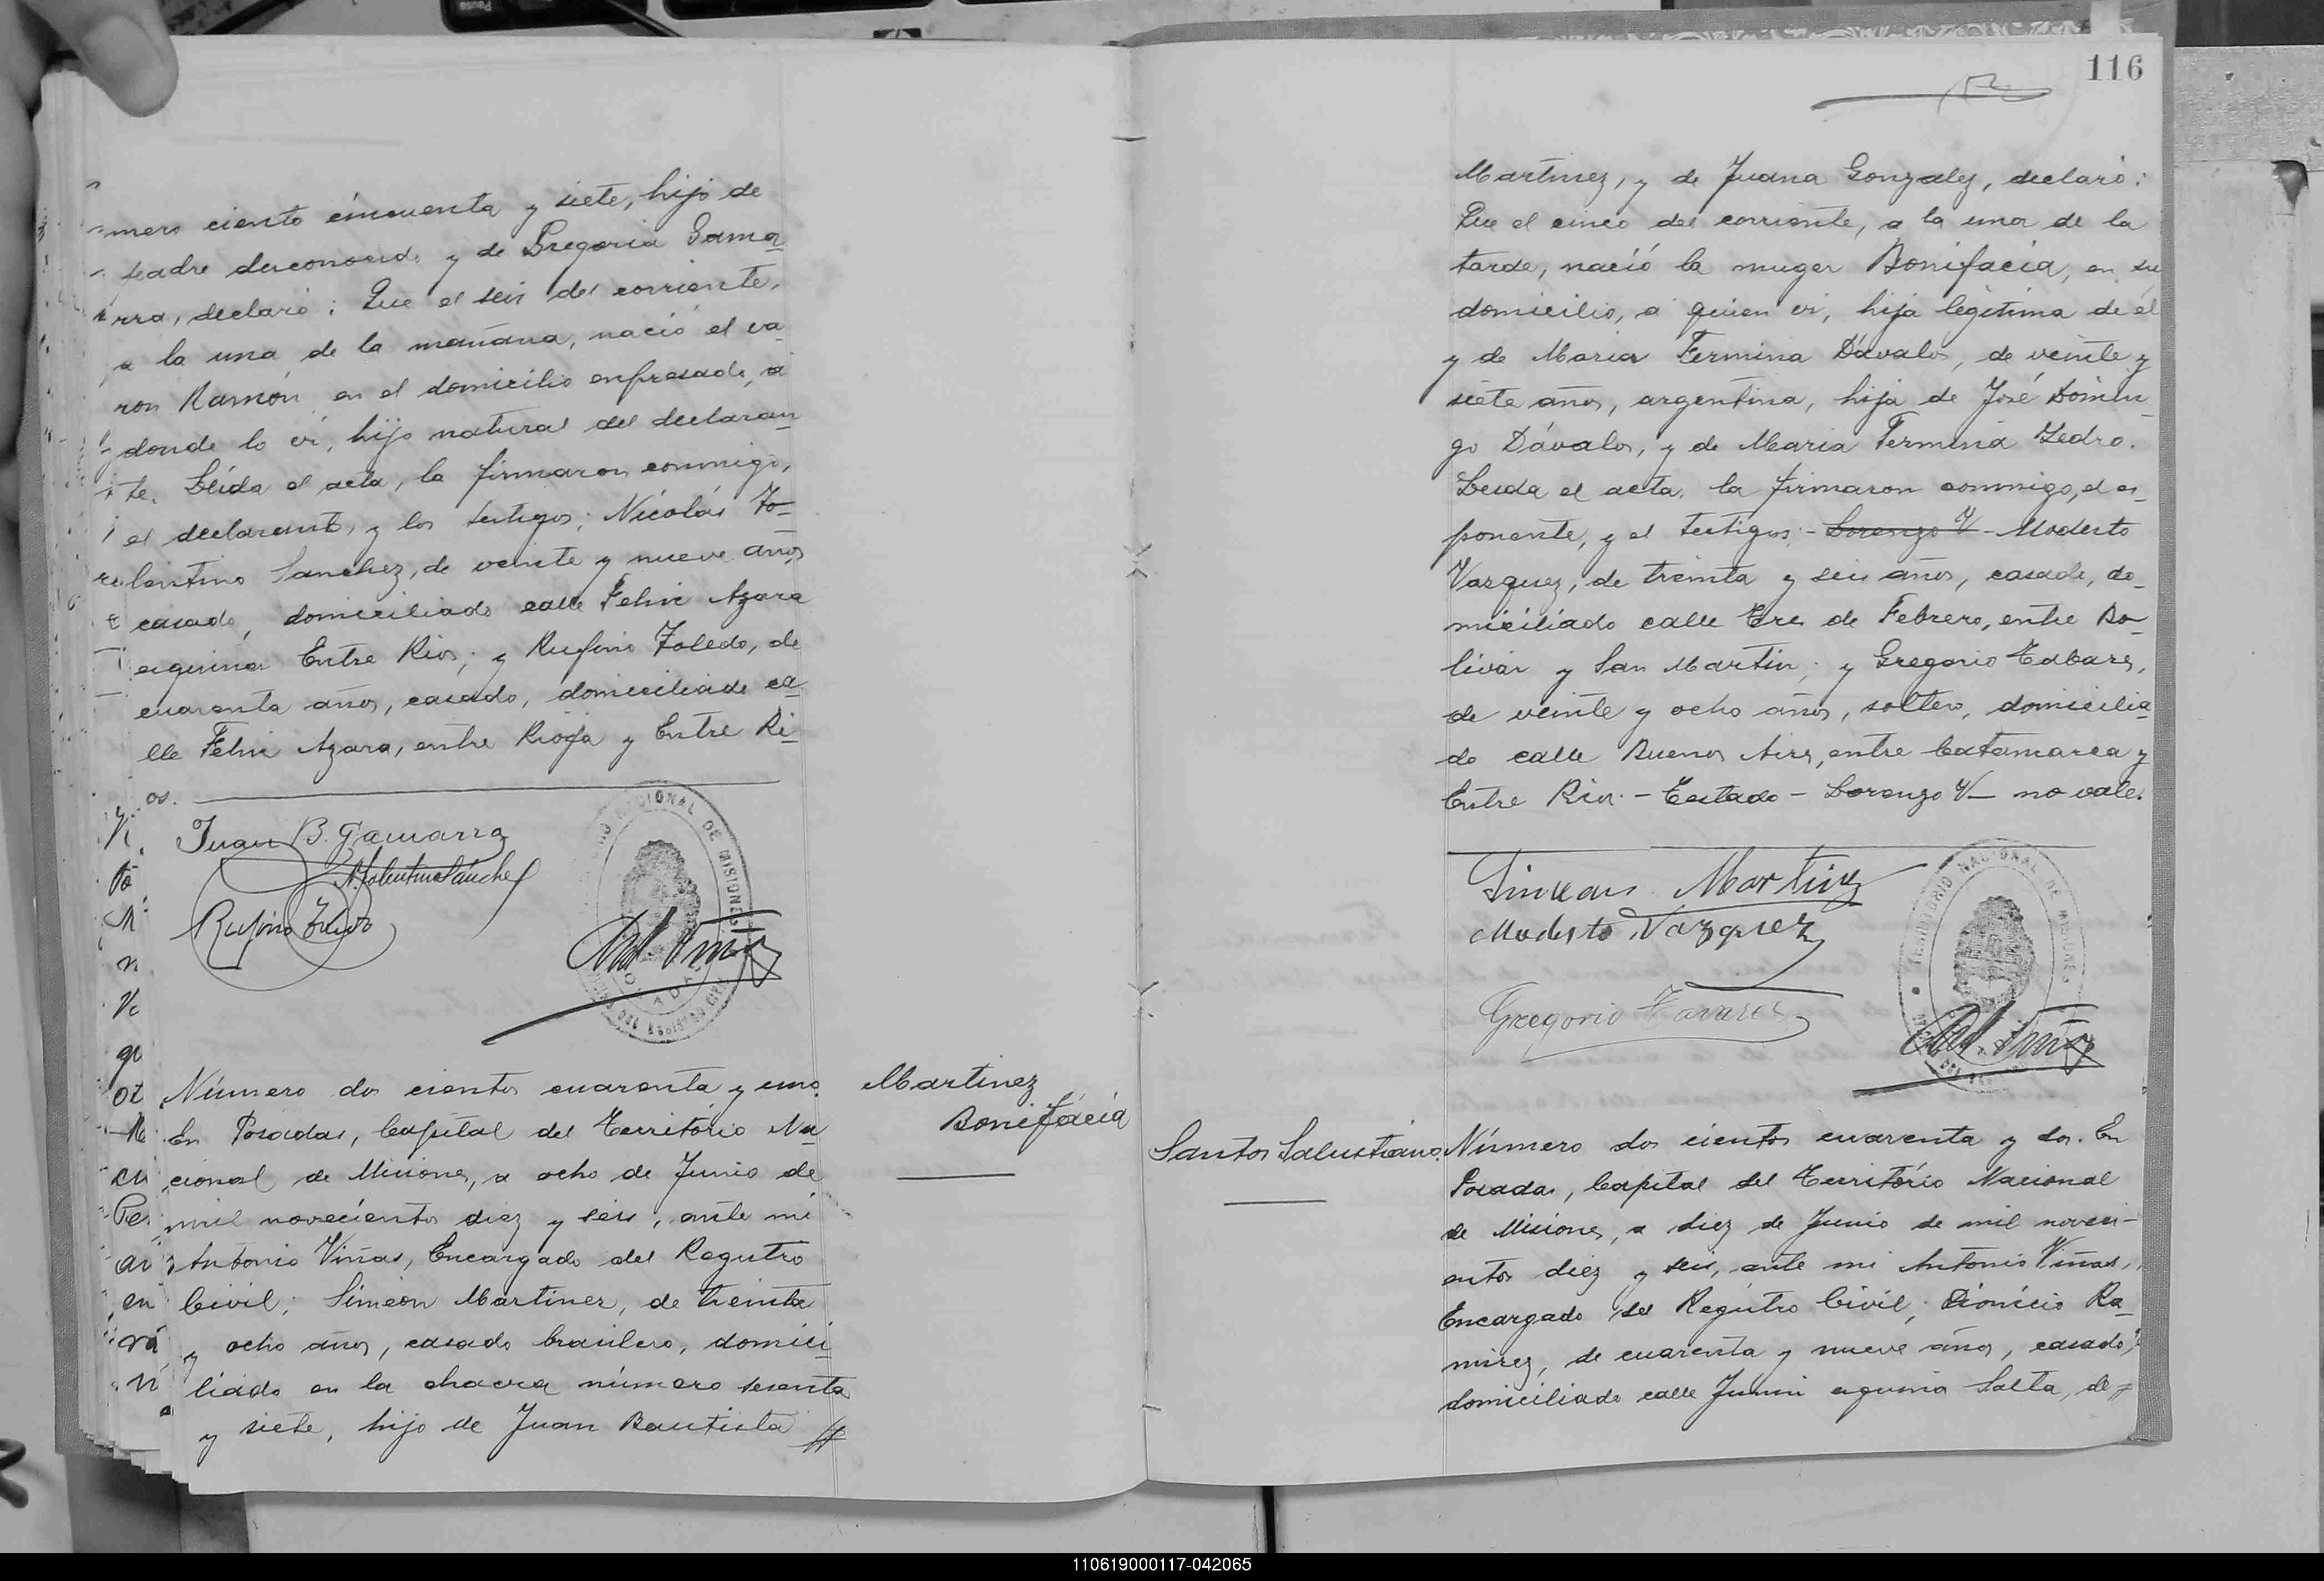 mero ciento cincuenta y siete, hijo de
padre desconocido y de Gregoria Gama
rra, declaró: Que el seis del corriente,
a la una de la mañana, nació el va
ron Ramón, en el domicilio expresado, a
donde lo vi, hijo natural del declaran
te. Leída el acta, la firmaron conmigo,
el declarante, y los testigos: Nicolás To=
lentino Sanchez, de veinte y nueve años
casado, domiciliado calle Felix Azara
esquina Entre Rios; y Rufino Toledo, de
cuarenta años, casado, domiciliado ca
lle Felix Azara, entre Rioja y Entre Ri
os.
Juan B. Gamarra
N. Tolentino Sánchez
Rufino Toledo
Número dos cientos cuarenta y uno.
Martinez
Bonifácia
En Posadas, Capital del Território Na
cional de Misiones, a ocho de Junio de
mil novecientos diez y seis, ante mi
Antonio Viñas, Encargado del Registro
Civil; Simeon Martinez, de treinta
y ocho años, casado brasilero, domici
liado en la chacra número sesenta
y siete, hijo de Juan Bautista //
116
Martinez, y de Juana Gonzalez, declaró:
Que el cinco del corriente, a la una de la
tarde, nació la muger Bonifacia, en su
domicilio, a quien vi, hija legítima de él
y de Maria Fermina Dávalos, de veinte y
siete años, argentina, hija de José Domin
go Dávalos, y de Maria Fermina Ledro.
Leida el acta, la firmaron conmigo, el es
ponente, y el testigos:- Lorenzo V - Modesto
Vazquez, de treinta y seis años, casado, do
miciliado calle Tres de Febrero, entre Bo
livar y San Martin; y Gregorio Tabares,
de veinte y ocho años, soltero, domicilia
do calle Buenos Aires, entre Catamarca y
Entre Rios.- Testado - Lorenzo V - no vale.
Simeon Martinez
Modesto Vazquez
Gregorio Tavares
TERRITORIO NACIONAL DE MISIONES
Santos Salustiano.
Número dos cientos cuarenta y dos. En
Posadas, Capital del Território Nacional
de Misiones, a diez de Junio de mil noveci-
entos diez y seis, ante mi Antonio Viñas,
Encargado del Registro Civil; Dionicio Ra
mirez, de cuarenta y nueve años, casado,
domiciliado calle Junin esquina Salta, de //
110619000117-042065